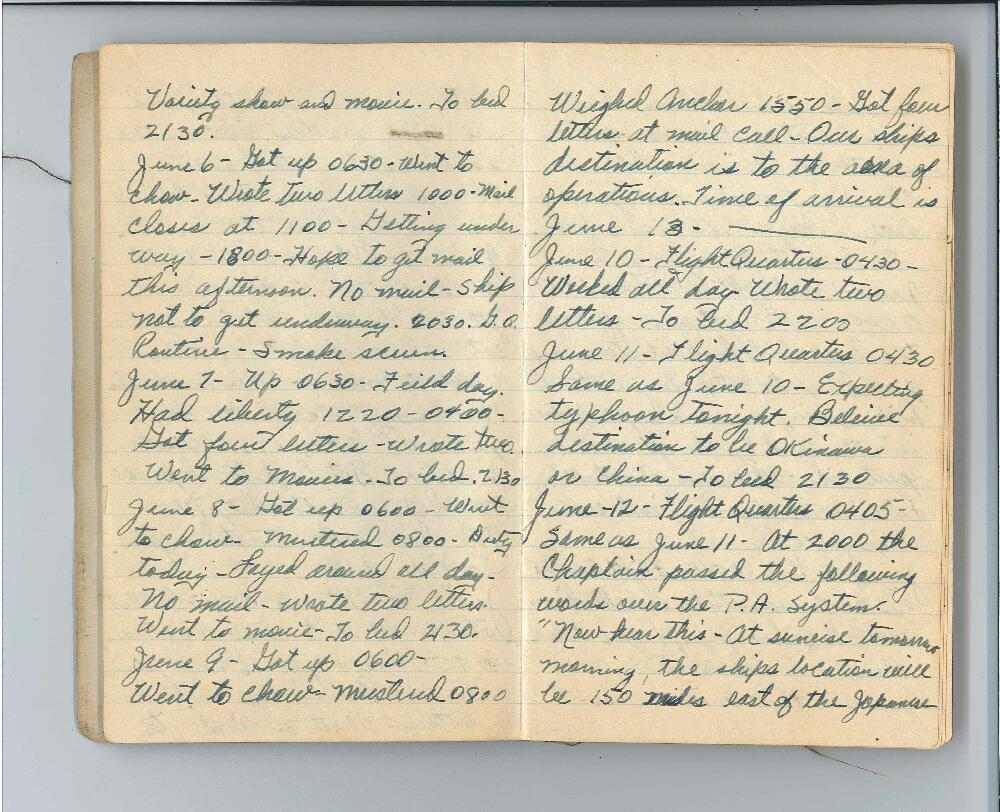 Variety show and movie. To bed
2130.
June 6 - Got up 0630 - Went to
chow - Wrote two letters 1000 - Mail
closes at 1100 - Getting under
way - 1800 - Hope to get mail
this afternoon. No mail - Ship
not to get underway. 2030. G.Q.
Routine - Smoke screen.
June 7 - Up 0630 - Feild day.
Had liberty 1220 - 0400 -
Got four letters - wrote two.
Went to Movies - To bed. 2130
June 8 - Got up 0600 - Went
to chow - Mustered 0800 - Duty
today - Layed around all day -
No mail - wrote two letters.
Went to movie - To bed 2130.
June 9 - Got up 0600 -
Went to chow - Mustered 0800
Wieghed Anchor 1550 - Got four
letters at mail call - Our ships
destination is to the area of
operations. Time of arrival is
June 13 -
June 10 - Flight Quarters - 0430 -
Worked all day - Wrote two
letters - To bed 2200
June 11 - Flight Quarters 0430
Same as June 10 - Expecting
typhoon tonight. Beleive
destination to be Okinawa
or China - To bed 2130
June - 12 - Flight Quarters 0405 -
Same as June 11 - At 2000 the
Chaplain passed the following
words over the P.A. System.
"Now hear this - At sunrise tomorrow
morning, the ships location will
be 150 miles east of the Japanese